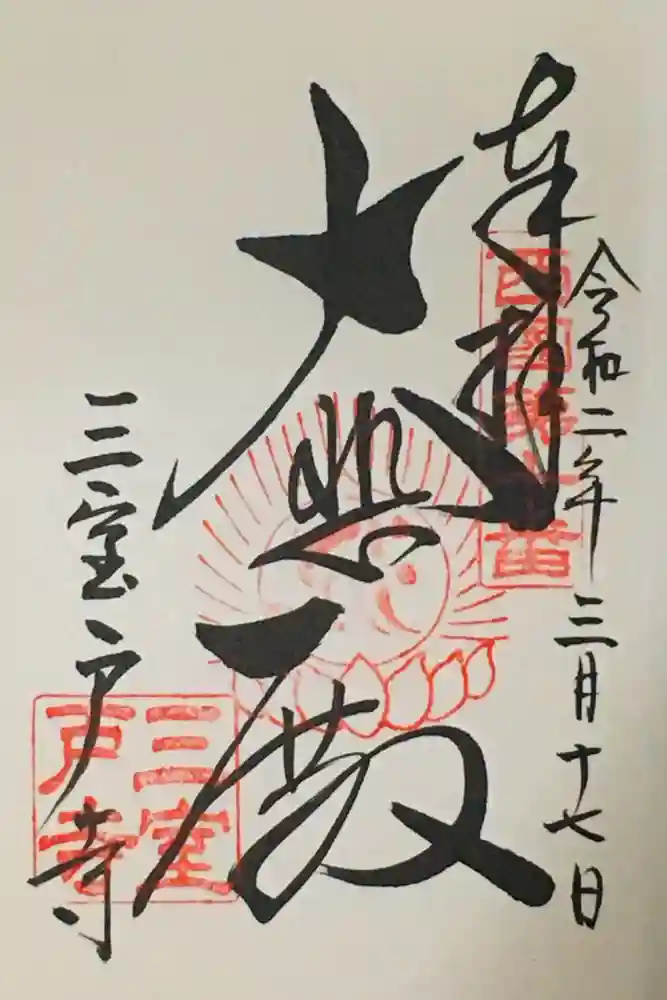 奉拝
令和二年三月十七日
西國第十番
大悲殿
三室戸寺
三室
戸寺